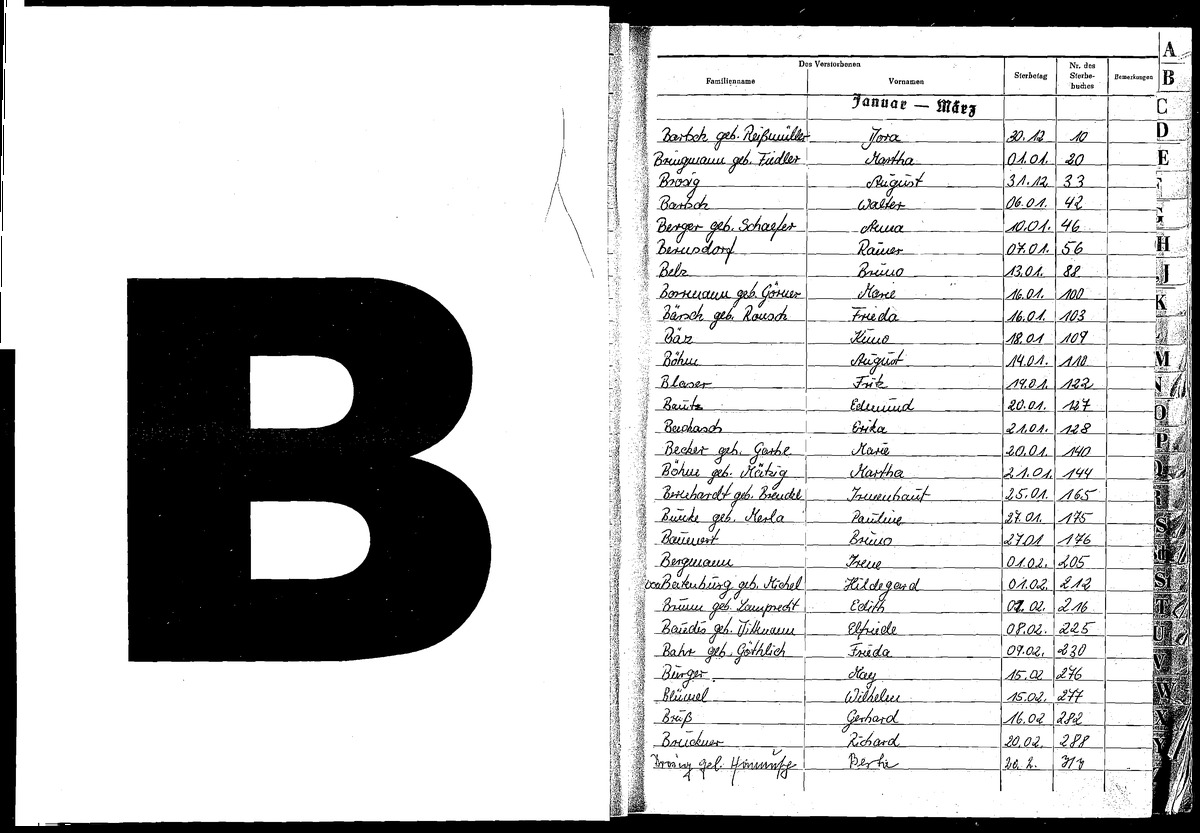 B
Des Verstorbenen
Familienname Vornamen Sterbetag Nr. des Sterbebuches Bemerkungen
Januar — März
Bartsch geb. Reißmüller Dora 30.12 10
Bringmann geb. Fiedler Martha 01.01. 20
Brosig August 31.12 33
Bartsch Walter 06.01. 42
Berger geb. Schaefer Anna 10.01. 46
Bernsdorf Rainer 07.01. 56
Belz Bruno 13.01. 88
Borrmann geb. Görner Marie 16.01. 100
Bärsch geb. Rausch Frieda 16.01. 103
Bäz Kuno 18.01 109
Böhm August 14.01. 110
Blaser Fritz 19.01. 122
Bautz Edmund 20.01. 127
Erika 21.01. 128
Becker geb. Garbe Marie 20.01. 140
Böhm geb. Mätzig Martha 21.01. 144
Bernhardt geb. Brendel Irmenhaut 25.01. 165
Buncke geb. Merla Pauline 27.01. 175
Bauert Bruno 27.01 176
Bergmann Irene 01.02. 205
geb. Michel Hildegard 01.02. 212
Brunn geb. Lamprecht Edith 02. 216
geb. Elfriede 08.02. 225
Bahr geb. Göthlich Frieda 09.02. 230
Burger May 15.02 276
Blümel Wilhelm 15.02. 277
Bruß Gerhard 16.02 282
Bruckner Richard 20.02. 288
Brosig geb. Berta 20.2. 313
A
B
C
D
E
H
J
K
M
N
O
P
Q
R
S
S
T
U
V
W
X
Y